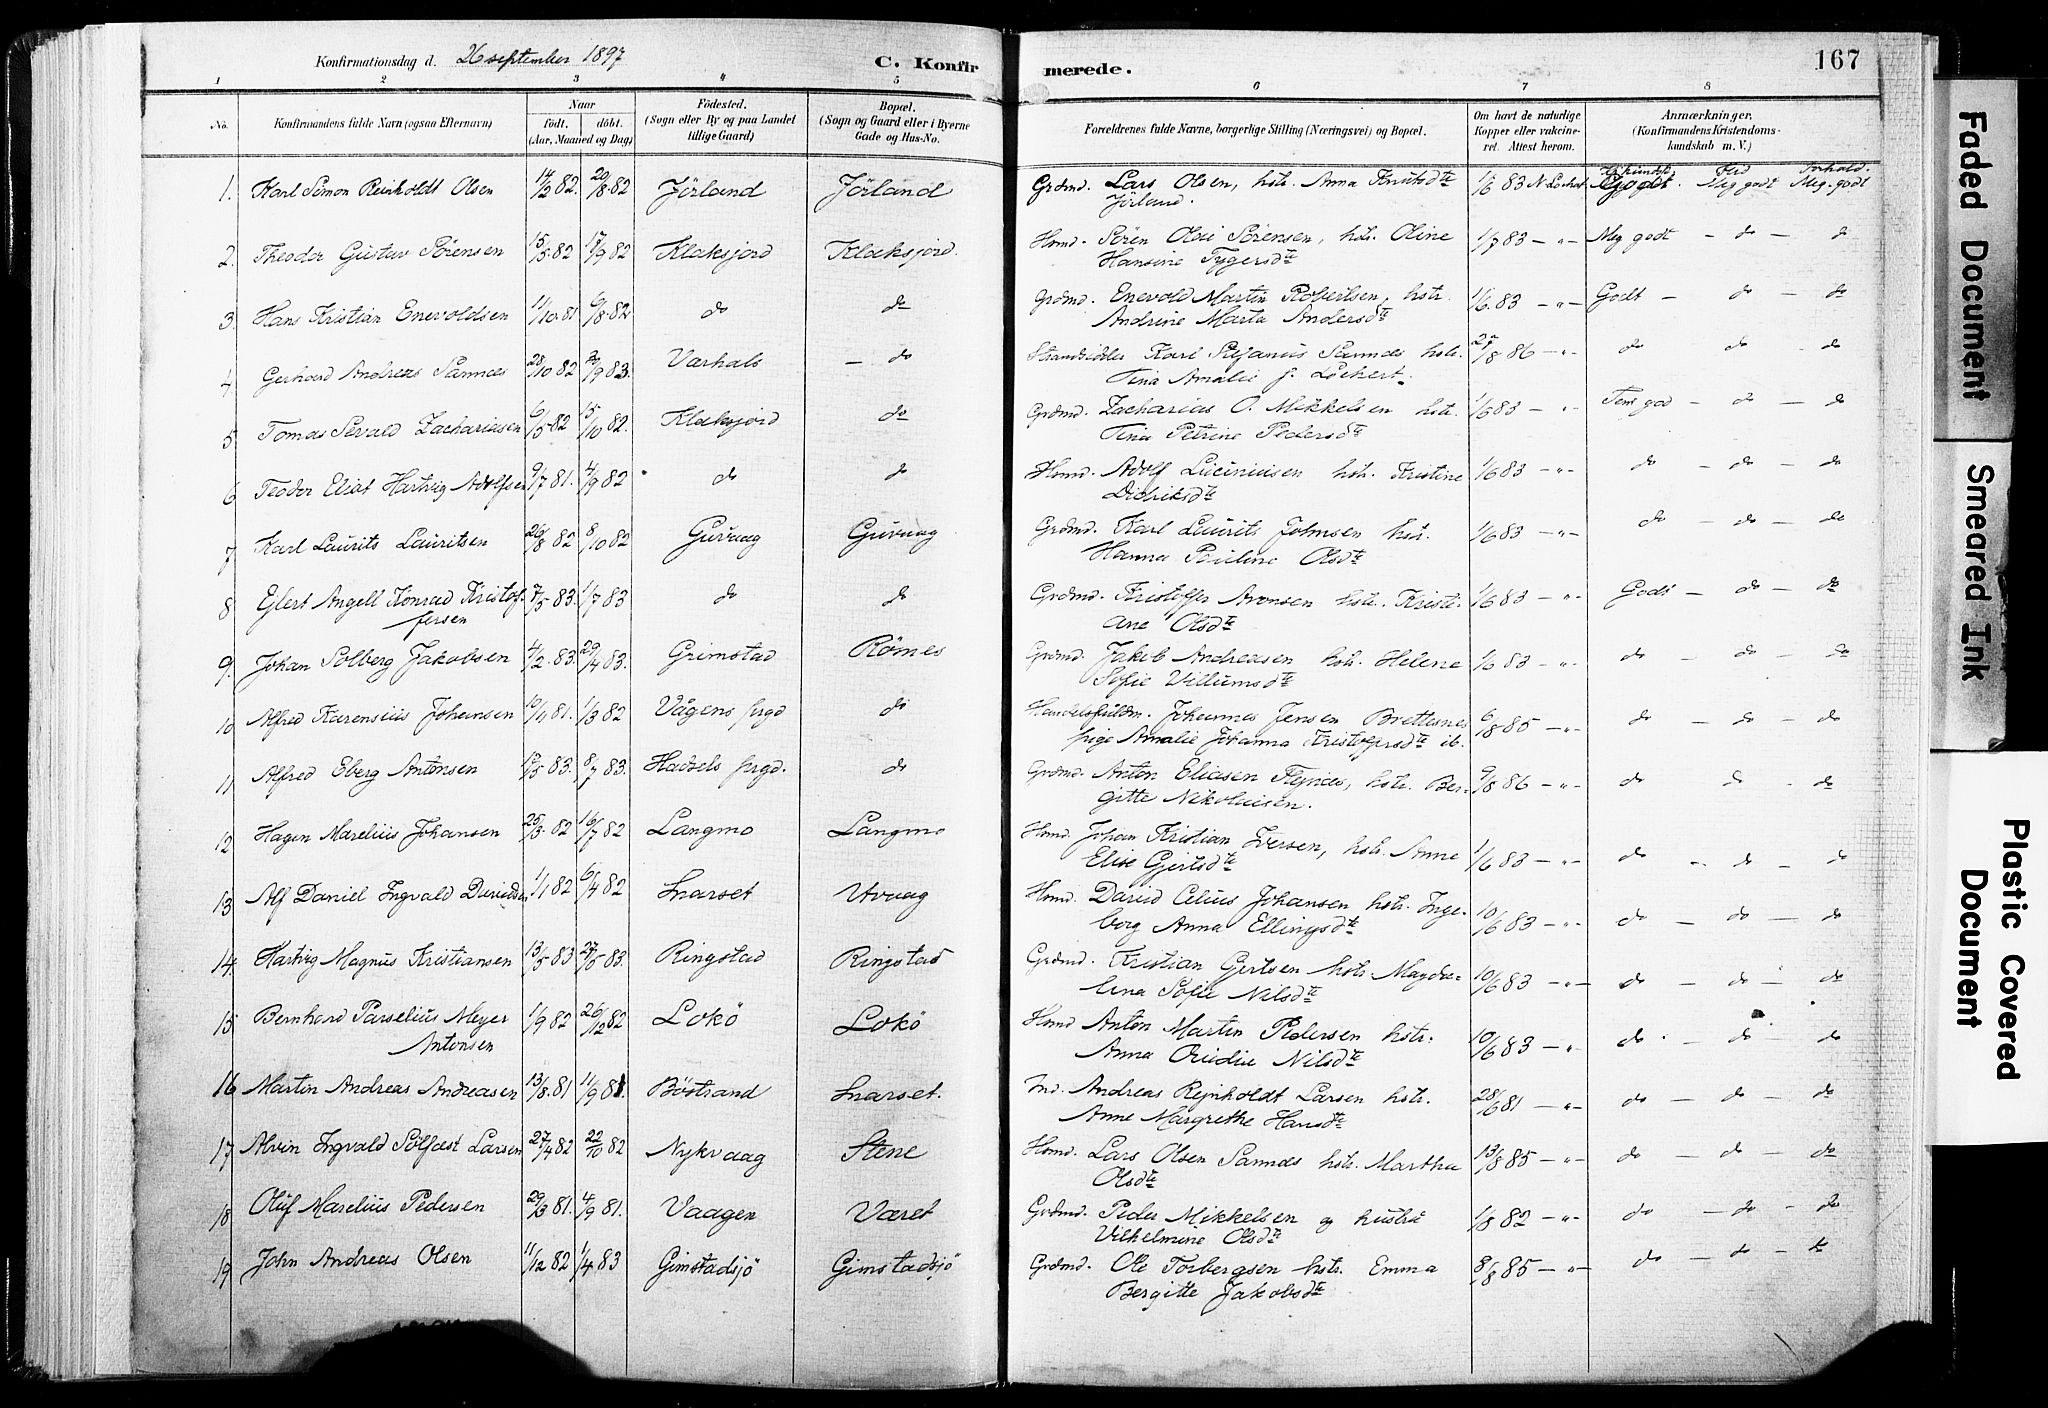 Konfirmationsdag d. 26 september 1897
C. Konfirmerede.
167
1 2 3 4 5 6 7 8
No. Konfirmandens fulde Navn (ogsaa Efternavn) Naar født, døbt. (Aar, Maaned og Dag) Fødested. (Sogn eller By og paa Landet tillige Gaard) Bopæl. (Sogn og Gaard eller i Byerne Gade og Hus-No. Forældrenes fulde Navne, borgerlige Stilling (Næringsvei) og Bopæl. Om havt de naturlige Kopper eller vakcineret. Attest herom. Anmærkninger. (Konfirmandens Kristendomskundskab m. V.)
1. Karl Simon Reinholdt Olsen 14/2 82. 20/8 82 Jörland Jörland Grdmd. Lars Olsen, hstr. Anna Knutsdtr 1/6 83 Godt. Meg godt Meg. godt
Jörland.
2. Theodor Gustav Sörensen 15/5 82 17/9 82 Klaksjord Klaksjord. Hsmd. Sören Olai Sörensen, hstr. Oline 1/7 83 - " - Meg godt - do - do
Hansine Tygersdtr
3. Hans Kristian Enevoldsen 11/10 81 6/8 82 do do Grdmd. Enevold Martin Robertsen, hstr. 1/6. 83 - " - Godt - do - do
Andrine Marta Andersdtr
4 Gerhard Andreas Sannes 28/10 82 2/9 83. Varhals - do Strandsidder Karl Stefanus Sannes hstr. 22/8 86 - " - do do do
Tina Amalie f. Lockert.
5 Tomas Sevald Zachariasen 6/5 82 15/10 82. Klaksjord do Grdmd. Zacharias O. Mikkelsen hstr. 1/6 83 - " - do - do
Tina Petrine Pedersdtr
6 Teodor Eliot Hartvig Adolfsen 9/7 81. 4/9 82 do do Hsmd. Adolf Lucinusen hstr. Kristine 1/6 83 - " - do - do - do
Didriksdtr
7 Karl Laurits Lauritsen 26/8 82 8/10 82 Guvaag Guvaag Grdmd. Karl Laurits Johnsen hstr. 1/6 83 - " - do - do - do
Hanna Pauline Olsdtr
8 Ejlert Angell Konrad Kristof- 7/5 83. 1/7 83 do do Grdmd. Kristoffer Aronsen hstr. Kristi- 1/6 83 - " - Godt - do - do
fersen ane Olsdtr
9. Johan Solberg Jakobsen 4/2. 83. 29/4 83. Grimstad Römes Grdmd. Jakob Andreasen hstr. Helene 1/6 83 - " - do - do - do
Sofie Villumsdtr
10 Alfred Karensius Johansen 10/11 81. 1/3 82 Vågens prgd do Handelsfuldm. Johannes Jensen Brettesnes 6/8 85 - " - do - do - do
pige Amalie Johanna Kristoffersdtr ib.
11 Alfred Eberg Antonsen 12/5 83. 8/7 83. Hadsels prgd. do Grdmd. Anton Eliasen Flynes, hstr. Ber- 9/8 86 - " - do do - do
gitte Nikolaisen.
12 Hagen Marelius Johansen 25/3. 82 16/7 82 Langmo Langmo Hsmd. Johan Kristian Iversen, hstr. Anne 1/6 83 - " - do - do - do
Elise Gjertsdtr
13 Alf Daniel Ingvald Davidsen 1/1 82 6/4 82 Snarset Utvaag Hsmd. David Celius Johansen hstr. Inge- 10/6 83 - " - do - do - do
borg Anna Ellingsdtr
14. Hartvig Magnus Kristiansen 13/5 83 27/5 83. Ringstad Ringstad Grdmd. Kristian Gertsen hstr. Magda- 10/6 83 - " - do - do - do
lena Sofie Nilsdtr
15 Bernhard Parselius Meyer 1/9 82 26/12 82 Lokö Lokö Hsmd Anton Martin Pedersen hstr. 10/6 83 - " - do - do - do
Antonsen Anna Ovidie Nilsdtr
16 Martin Andreas Andreasen 13/8. 81 11/9 81. Böstrand Snarset. Ind. Andreas Rejnholdt Larsen hstr. 28/6 81 - " - do - do - do
Anne Margrethe Hansdtr
17 Alvin Ingvald Solfast Larsen 27/4 82 22/10 82 Nykvaag Stene Hsmd. Lars Olsen Sannes hstr. Martha 13/8 85 - " - do - do - do
Olsdtr
18 Oluf Marelius Pedersen 29/3 81. 4/9 81. Vaagen Været Grdmd. Peder Mikkelsen og hustru 1/8 82 - " - do - do - do
Vilhelmine Olsdtr
19 John Andreas Olsen 11/12 82 1/4 83 Gimstadsjö Gimstadsjö Grdmd. Ole Torbergsen hstr. Emma 8/8 85 - " - do - do - do
Bergitte Jakobsdtr
Faded Document
Smeared Ink
Plastic Covered Document